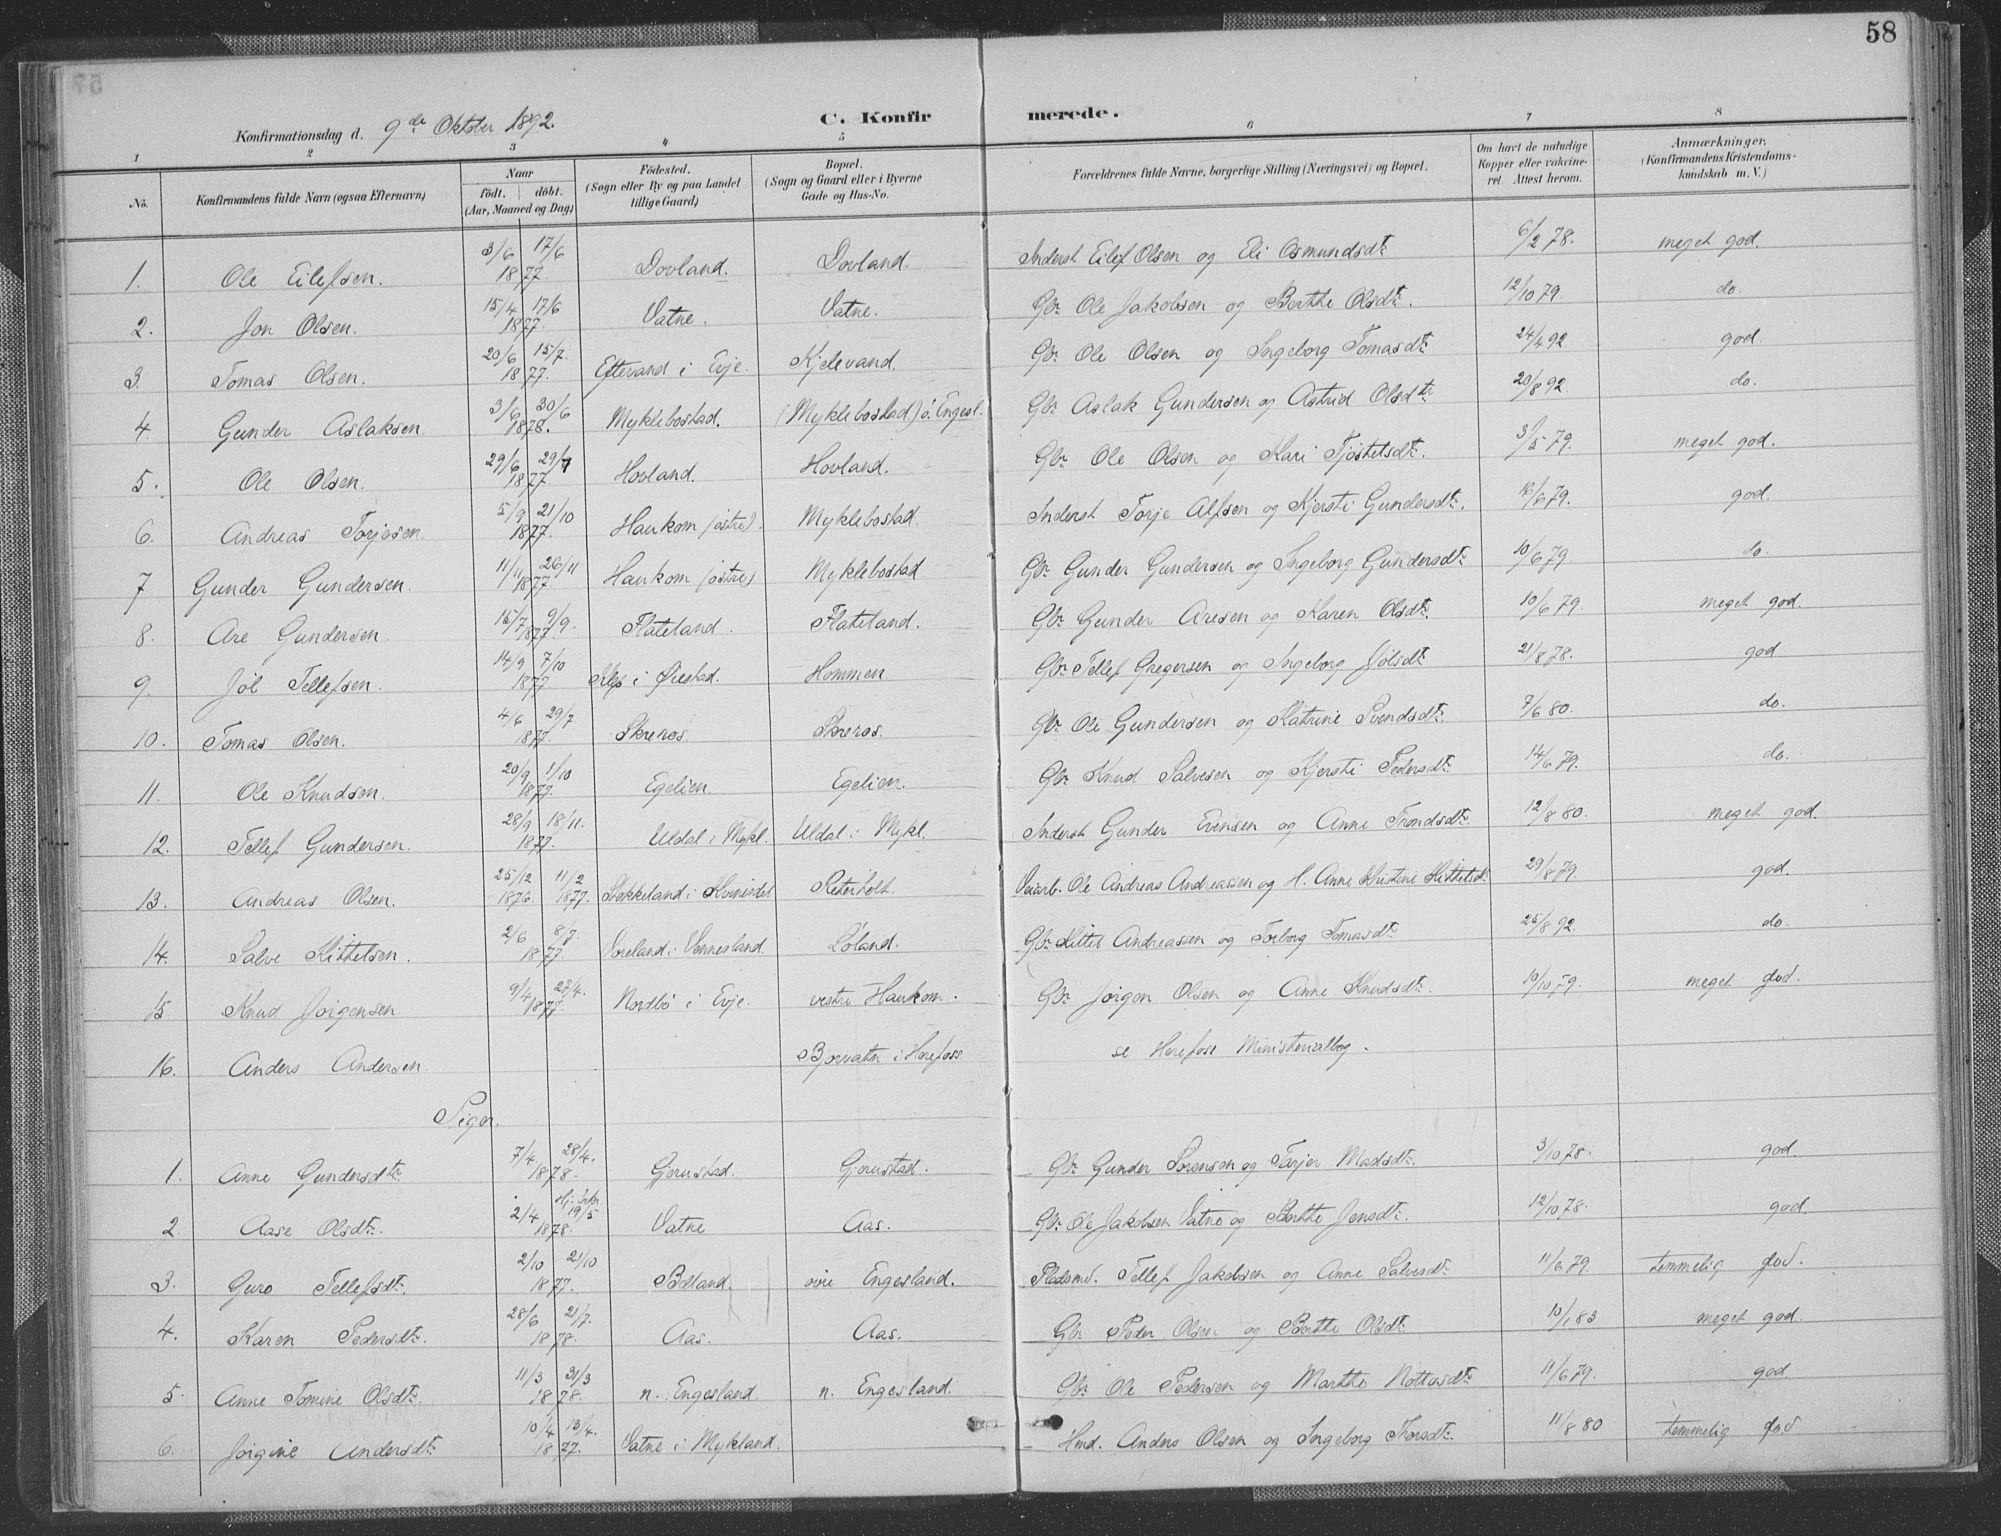 58
Konfirmationsdag d. 9de Oktober 1892.
C. Konfirmerede.
1 2 3 4 5 6 7 8
No. Konfirmandens fulde Navn (ogsaa Efternavn) Naar födt. döbt. (Aar, Maaned og Dag) Födested. (Sogn eller By og paa Landet tillige Gaard) Bopæl. (Sogn og Gaard eller i Byerne Gade og Hus-No. Forældrenes fulde Navne, borgerlige Stilling (Næringsvei) og Bopæl. Om havt de naturlige Kopper eller vakcineret. Attest herom. Anmærkninger. (Konfirmandens Kristendomskundskab m. V.)
1. Ole Eilefsen. 3/6 17/6 1877. Dovland. Dovland. Inderst Eilef Olsen og Eli Osmundsdtr 6/2 78. meget god.
2. Jon Olsen. 15/4 17/6 1877. Vatne. Vatne. Gbr Ole Jakobsen og Berthe Olsdtr. 12/10 79 do.
3. Tomas Olsen. 20/6 15/7. 1877. Eftevand i Evje. Kjelevand. Gbr Ole Olsen og Ingeborg Tomasdtr 24/4 92 god.
4. Gunder Aslaksen. 3/6 30/6 1878. Myklebostad. (Myklebostad) ö. Engesl. Gbr Aslak Gundersen og Astrid Olsdtr 20/8 92 do.
5. Ole Olsen. 29/6 29/7 1877. Hovland. Hovland. Gbr Ole Olsen og Kari Tjöstelsdtr. 3/5 79. meget god.
6. Andreas Torjesen. 5/9 21/10 1877. Haukom (östre). Myklebostad. Inderst Torje Alfsen og Kjersti Gundersdtr. 16/6 79. god.
7 Gunder Gundersen. 11/11 26/11 1877 Haukom (östre) Myklebostad Gbr Gunder Gundersen og Ingeborg Gundersdtr 10/6 79. do.
8. Are Gundersen. 15/7 9/9. 1877 Flateland. Flateland. Gbr Gunder Aresen og Karen Olsdtr. 10/6 79. meget god.
9. Jöl Tellefsen. 14/9 7/10 1877. Klep i Øiestad. Hommen. Gbr Tellef Gregersen og Ingeborg Jölsdtr 21/8 78. god
10. Tomas Olsen. 4/6 29/7 1877. Skreros. Skreros. Gbr Ole Gundersen og Katrine Svendsdtr 7/6 80. do.
11. Ole Knudsen. 20/9 1/10 1877. Egelien. Egelien. Gbr Knud Salvesen og Kjersti Pedersdtr. 14/6 79. do.
12. Tellef Gundersen. 28/9 18/11. 1877. Uldal i Mykl. Uldal i Mykl. Inderst Gunder Evensen og Anne Trondsdtr. 12/8 80. meget god.
13. Andreas Olsen. 25/12 1876. 11/2 1877. Stokkeland i Kvinisdal Reterholt. Veiarb. Ole Andreas Andreassen og H. Anne Kristine Kittelsdtr 29/8 79 god.
14. Salve Kittelsen. 2/6 8/7. 1877. Voreland i Vennesland Löland. Gbr Kittel Andreassen og Torborg Tomasdtr. 25/8 92. do.
15 Knud Jörgensen 9/4 28/4. 1877. Nordbö i Evje. vestre Haukom. Gbr Jörgen Olsen og Anne Knudsdtr. 10/10 79. meget god.
16. Anders Andersen. Bjorvatn i Herefoss se Herefoss Ministerialbog.
Piger.
1. Anne Gundersdtr. 7/4 28/4. 1878. Gjerustad. Gjerustad. Gbr Gunder Sörensen og Tarjer Madsdtr. 3/10 78. god.
2. Aase Olsdtr. 2/4 19/5 1878. Vatne Aas. Gbr Ole Jakobsen Vatne og Berthe Jensdtr. 12/10 78. god.
3. Guro Tellefsdtr. 2/10 21/10 1877. Bölland. övre Engesland. Pladsmd. Tellef Jakobsen og Anne Salvesdtr. 11/6 79. temmelig god.
4. Karen Pedersdtr. 28/6 21/7. 1878. Aas. Aas. Gbr Peder Olsen og Berthe Olsdtr. 10/1 83 meget god.
5. Anne Tomine Olsdtr. 11/3 31/3 1878. n. Engesland. n. Engesland. Gbr Ole Pedersen og Marthe Nottosdtr 11/6 79. god
6. Jörgine Andersdtr. 10/4 13/4. 1877. Vatne i Mykland. Hmd. Anders Olsen og Ingeborg Thorsdtr. 11/8 80 temmelig god